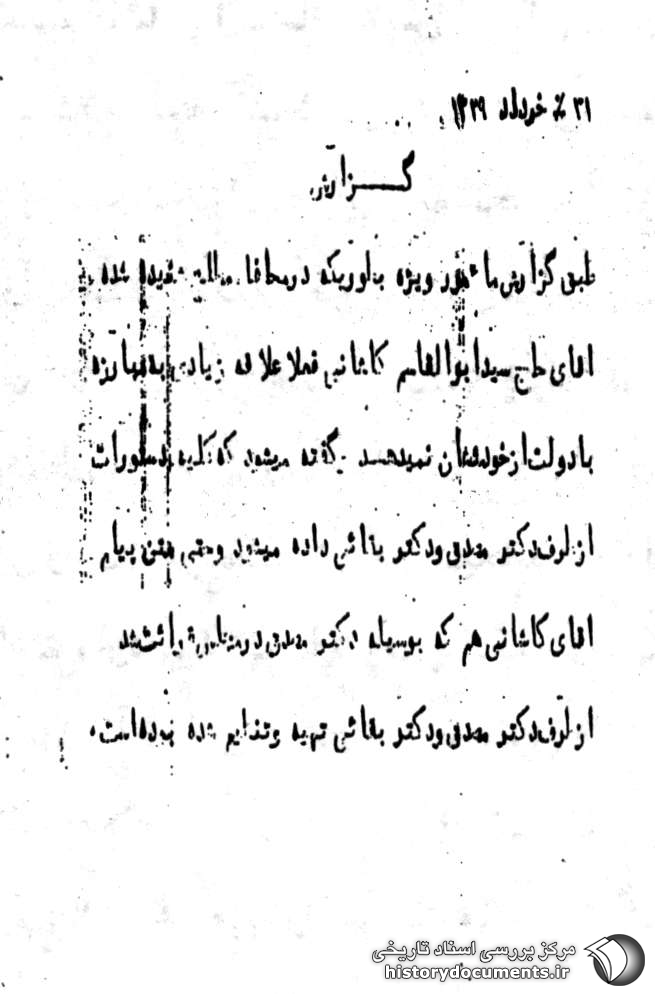 ۳۱ خرداد ۱۳۲۹
گزارش
طبق گزارش مأمور ویژه بطوریکه در محافل مطلع شنیده شده
اقای حاج سیدابوالقاسم کاشانی فعلا علاقه زیادی به مبارزه
با دولت از خود نشان نمیدهند گفته میشود که کلیه دستورات
از طرف دکتر مصدق و دکتر بقائی داده میشود و حتی متن پیام
اقای کاشانی هم که بوسیله دکتر مصدق در مجلس قرائت شد
از طرف دکتر مصدق و دکتر بقائی تهیه و تنظیم شده بوده است.
مرکز بررسی اسناد تاریخی
historydocuments.ir